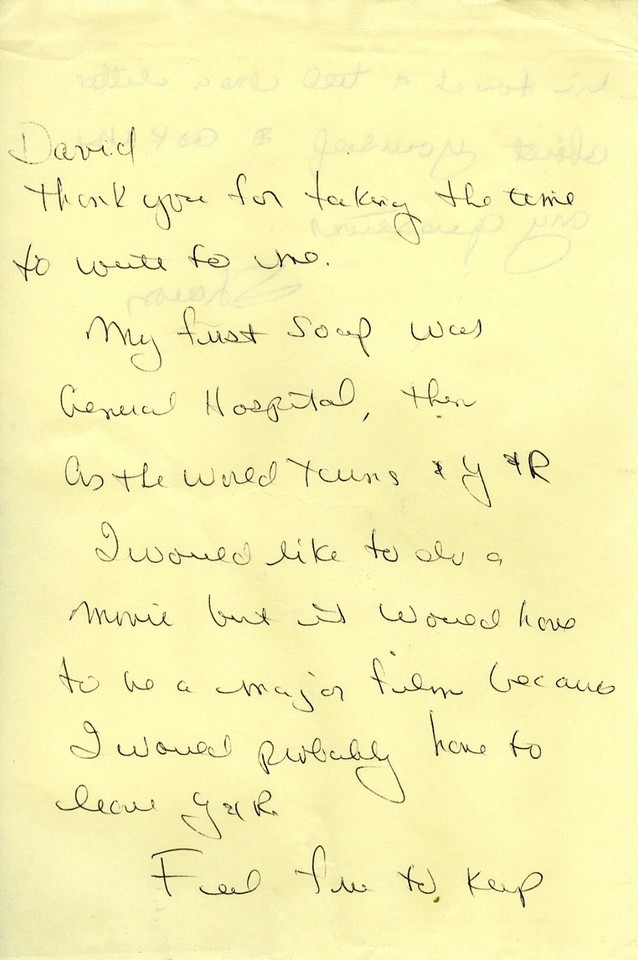 David
Thank you for taking the time
to write to me.
My first Soap was
General Hospital, then
As the World Turns & Y & R
I would like to do a
movie but it would have
to be a major film because
I would probably have to
leave Y & R.
Feel free to keep